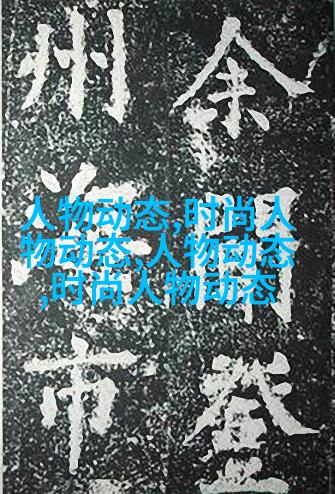 余聞登
州海市
人物动态,时尚人
物动态,人物动态
,时尚人物动态